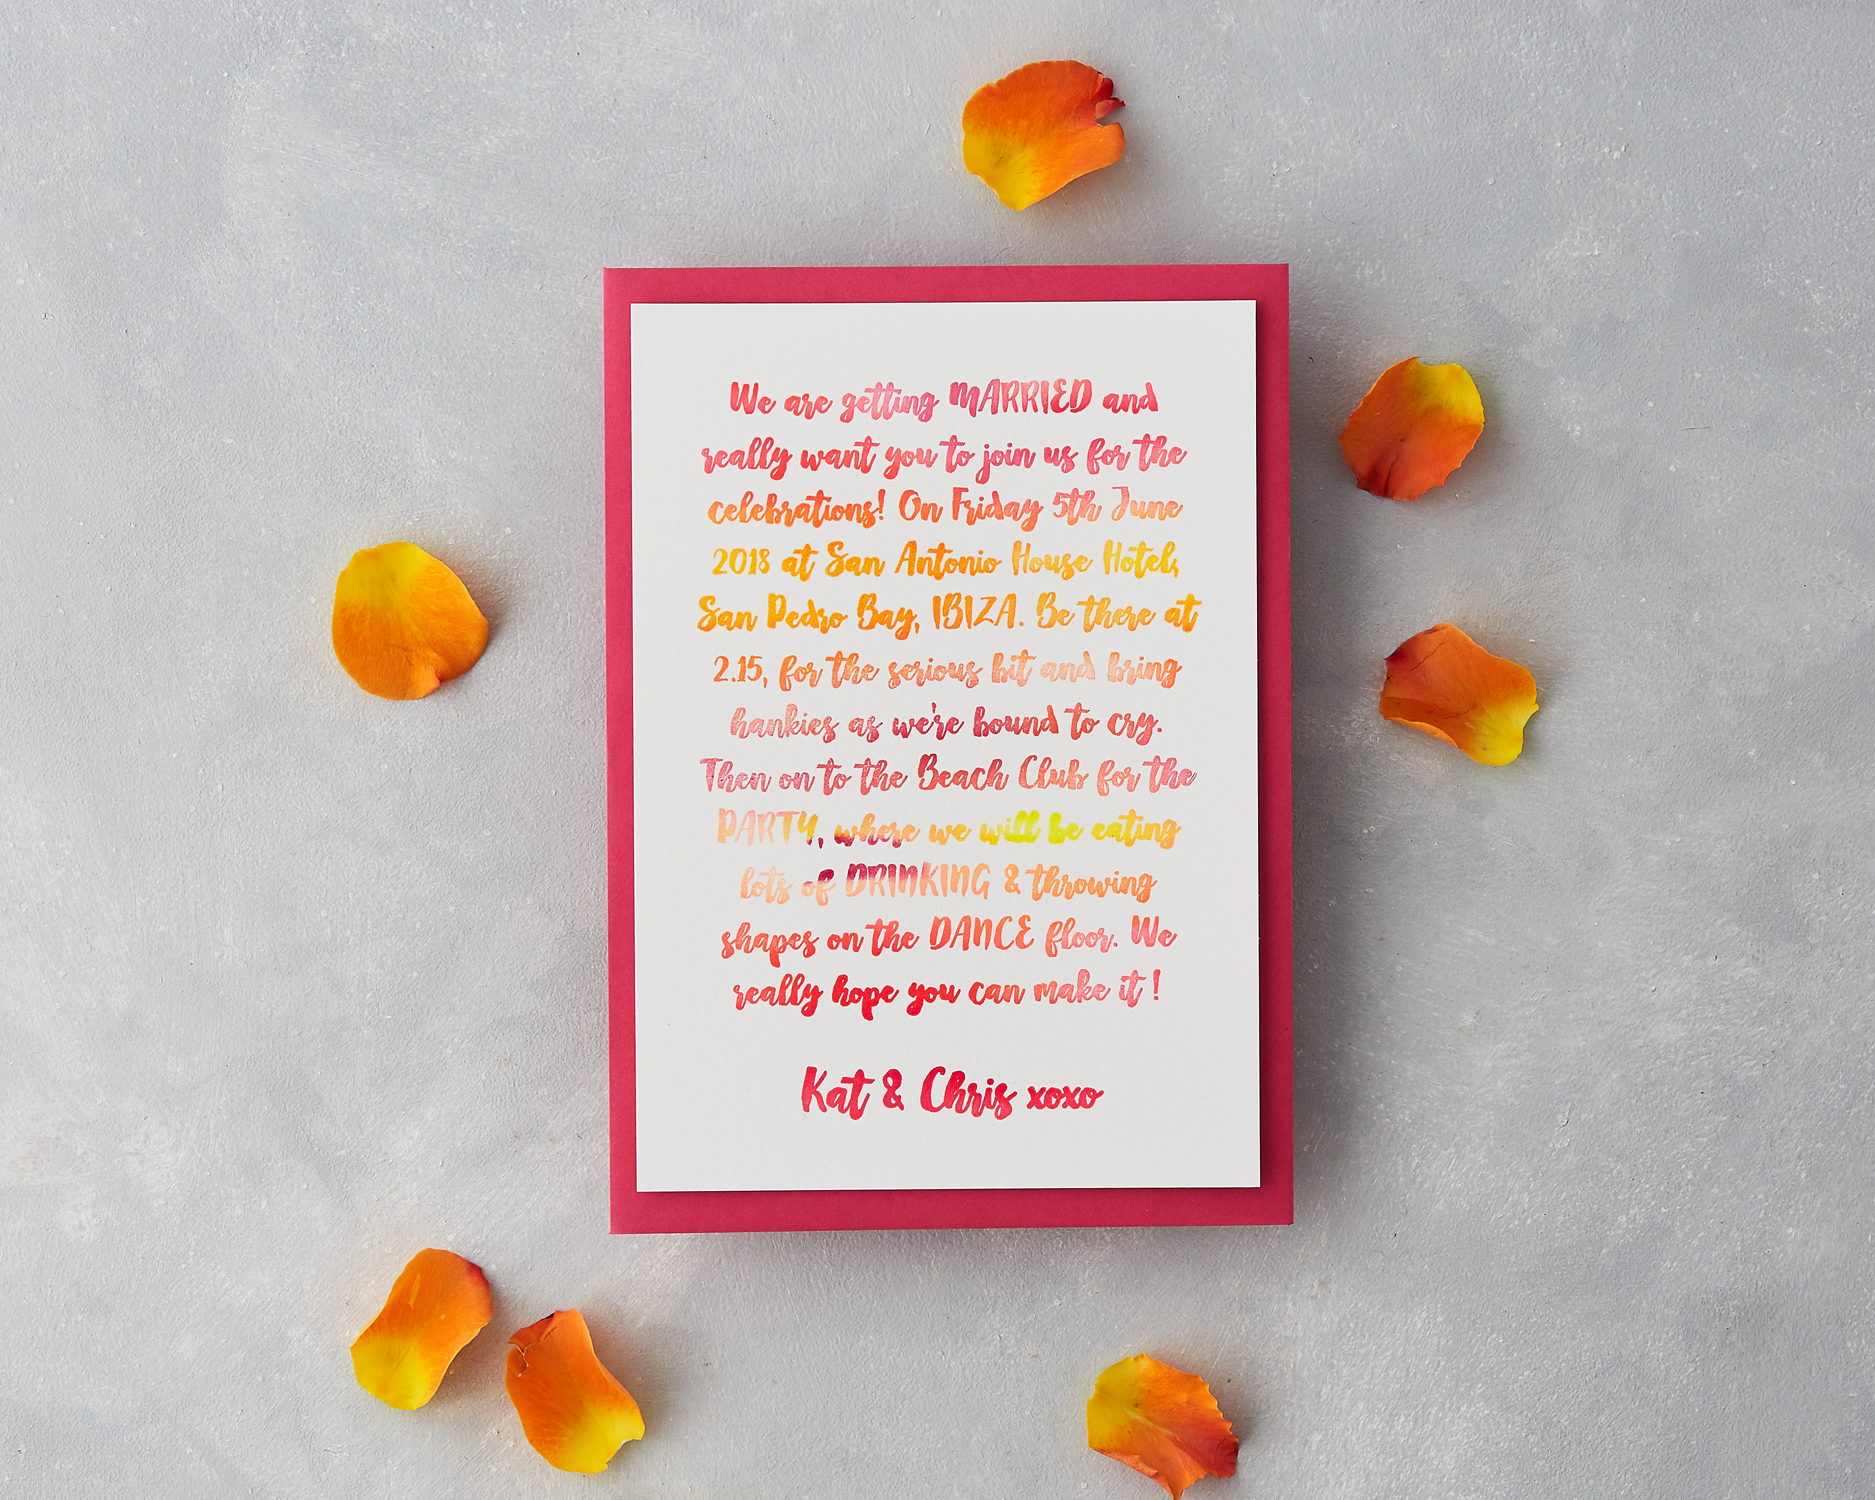 We are getting MARRIED and
really want you to join us for the
celebrations! On Friday 5th June
2018 at San Antonio House Hotel,
San Pedro Bay, IBIZA. Be there at
2.15, for the serious bit and bring
hankies as we're bound to cry.
Then on to the Beach Club for the
PARTY, where we will be eating
lots of DRINKING & throwing
shapes on the DANCE floor. We
really hope you can make it !
Kat & Chris xoxo